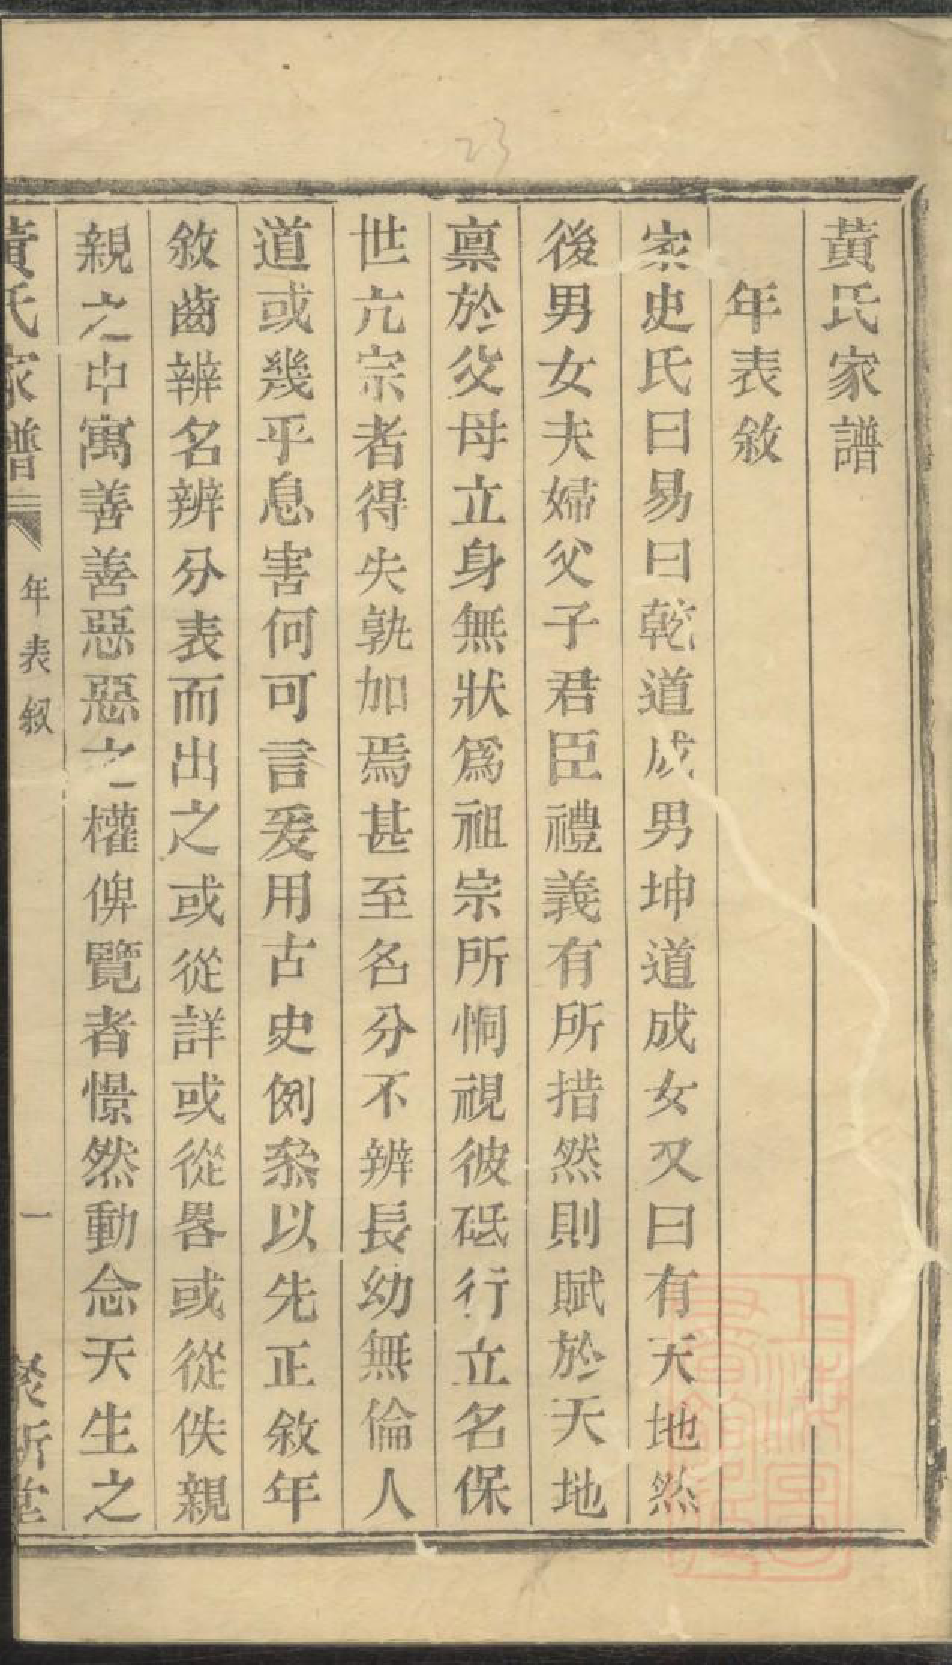 黃氏家譜
年表敘
家史氏曰易曰乾道成男坤道成女又曰有天地然
後男女夫婦父子君臣禮義有所措然則賦於天地
禀於父母立身無狀爲祖宗所恫視彼砥行立名保
世亢宗者得失孰加焉甚至名分不辨長幼無倫人
道或幾乎息害何可言爰用古史例叅以先正敘年
敘齒辨名辨分表而出之或從詳或從畧或從佚親
親之中寓善善惡惡之權俾覽者憬然動念天生之
黃氏家譜 年表敘 一
23